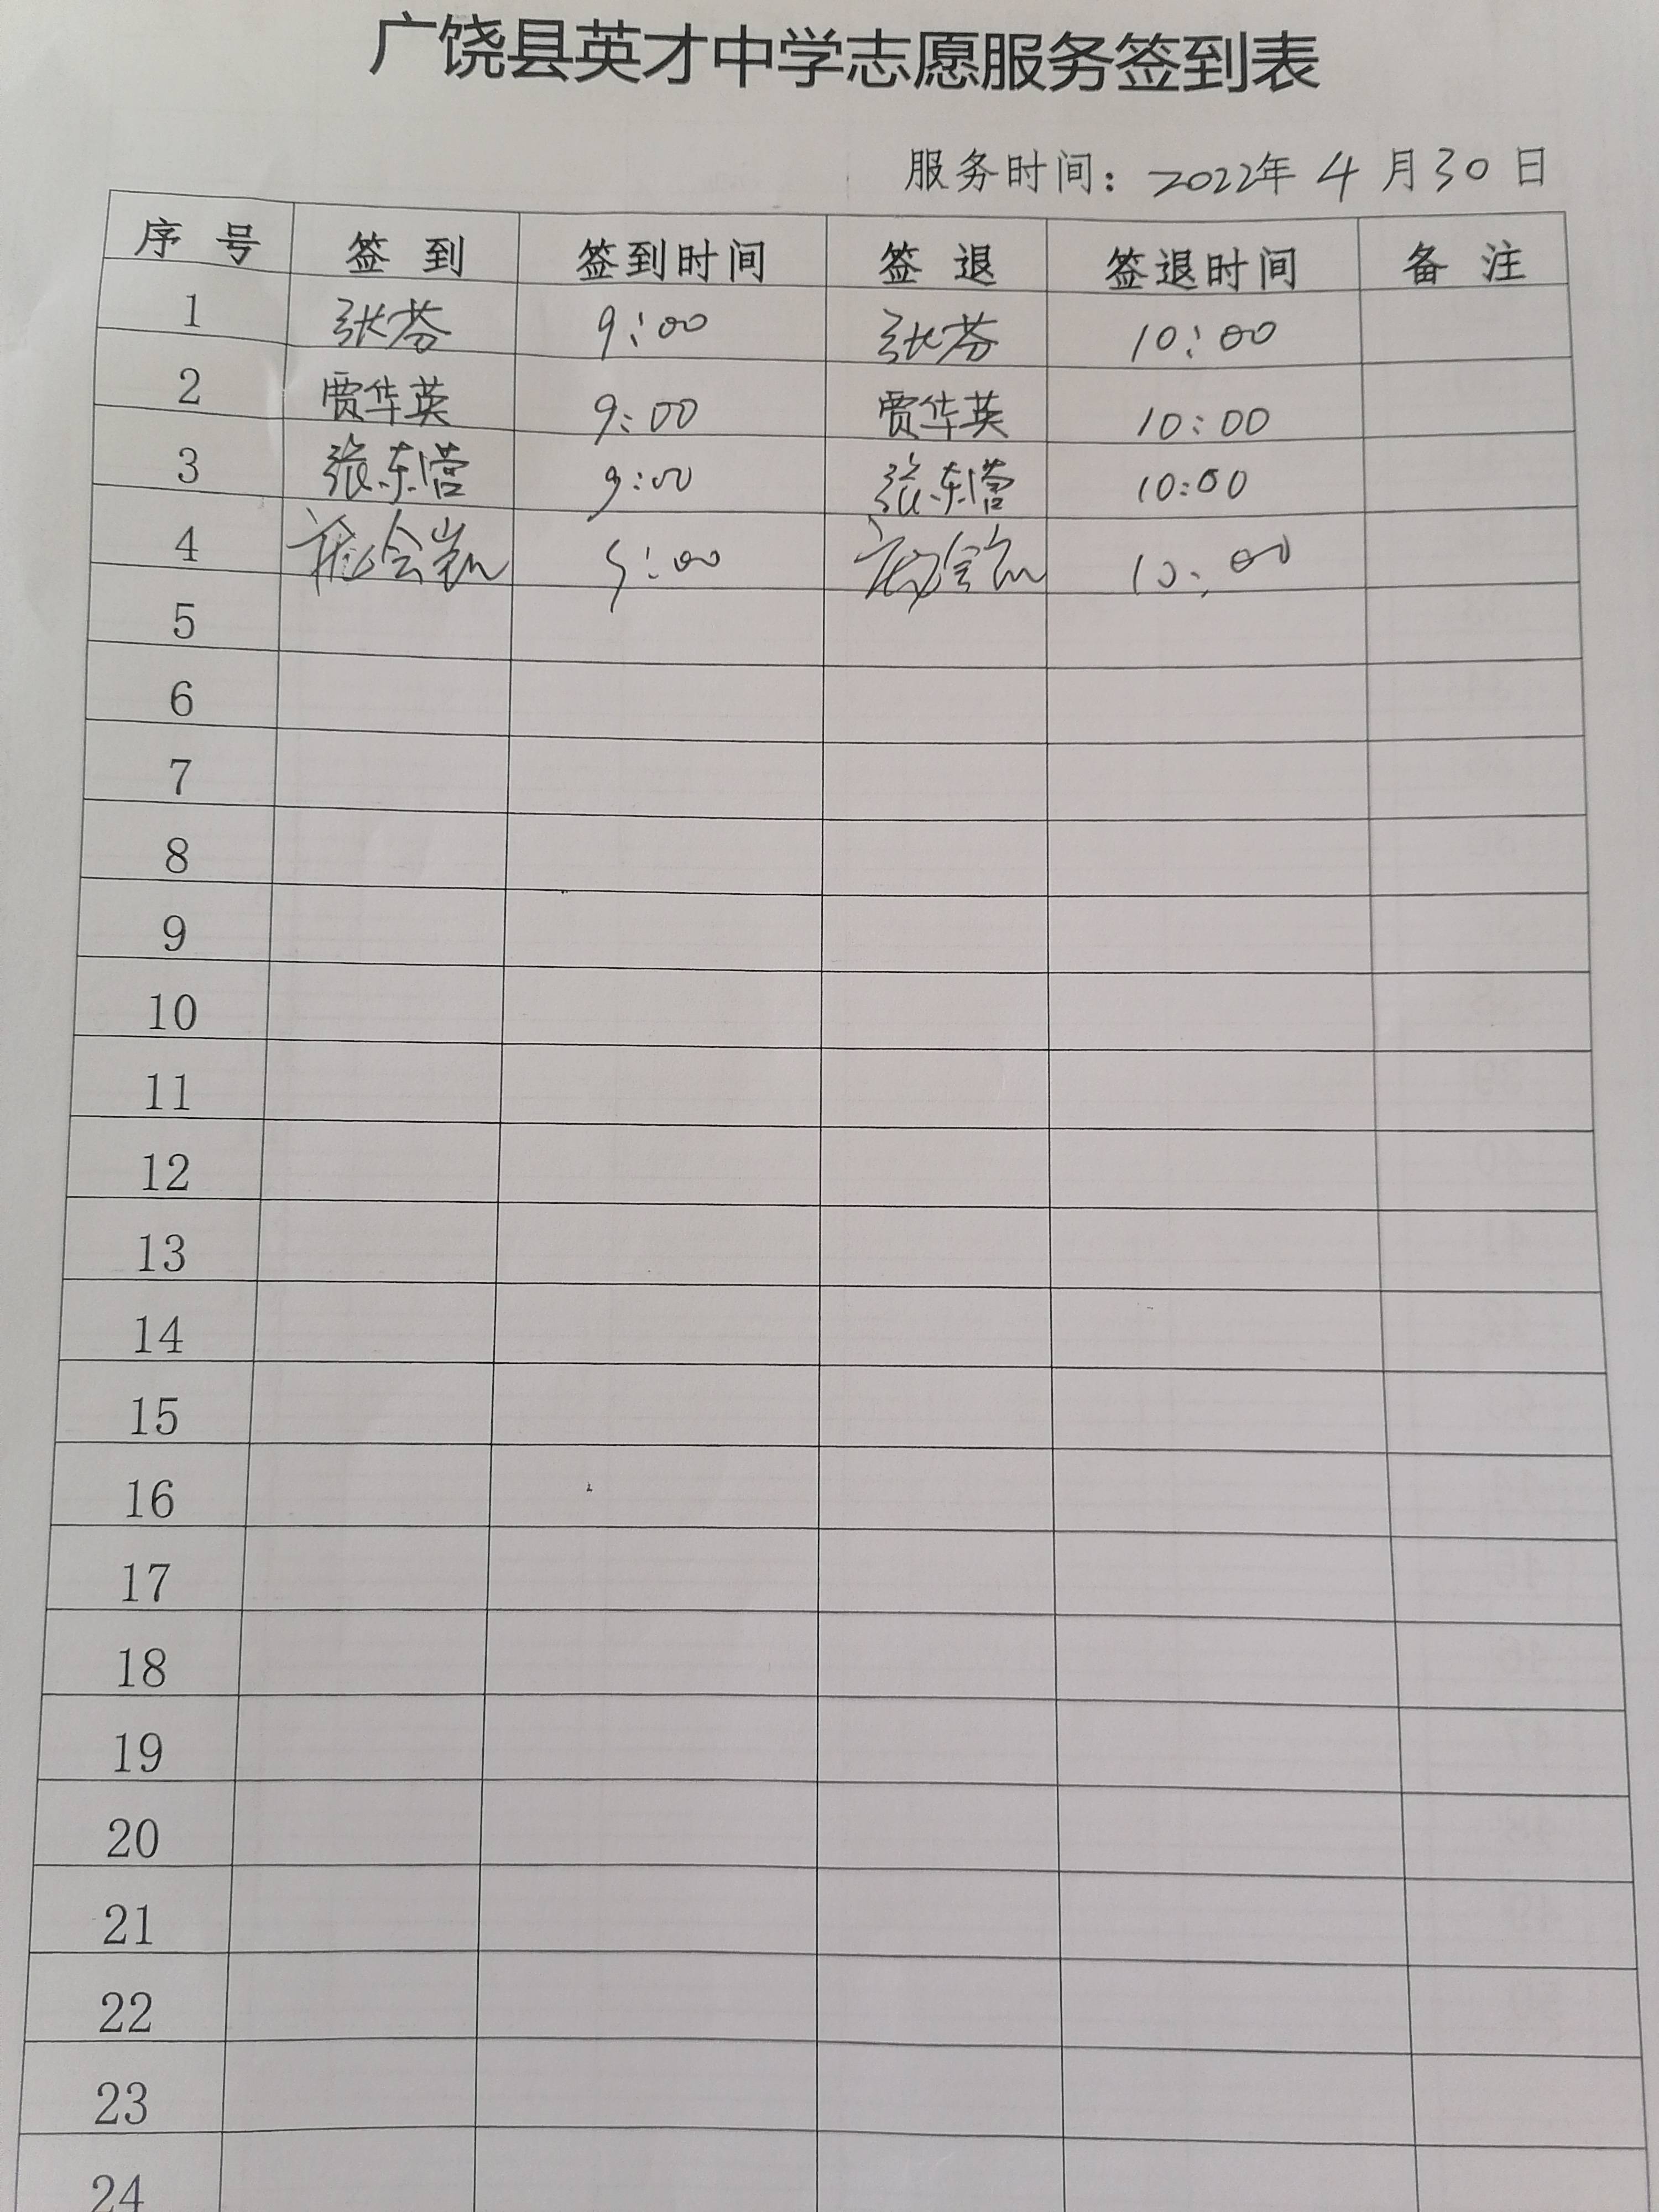 广饶县英才中学志愿服务签到表
服务时间：2022年 4 月 30 日
序 号 签 到 签到时间 签 退 签退时间 备 注
1 张芬 9:00 张芬 10:00
2 贾华英 9:00 贾华英 10:00
3 张东营 9:00 张东营 10:00
4 9:00 10:00
5
6
7
8
9
10
11
12
13
14
15
16
17
18
19
20
21
22
23
24